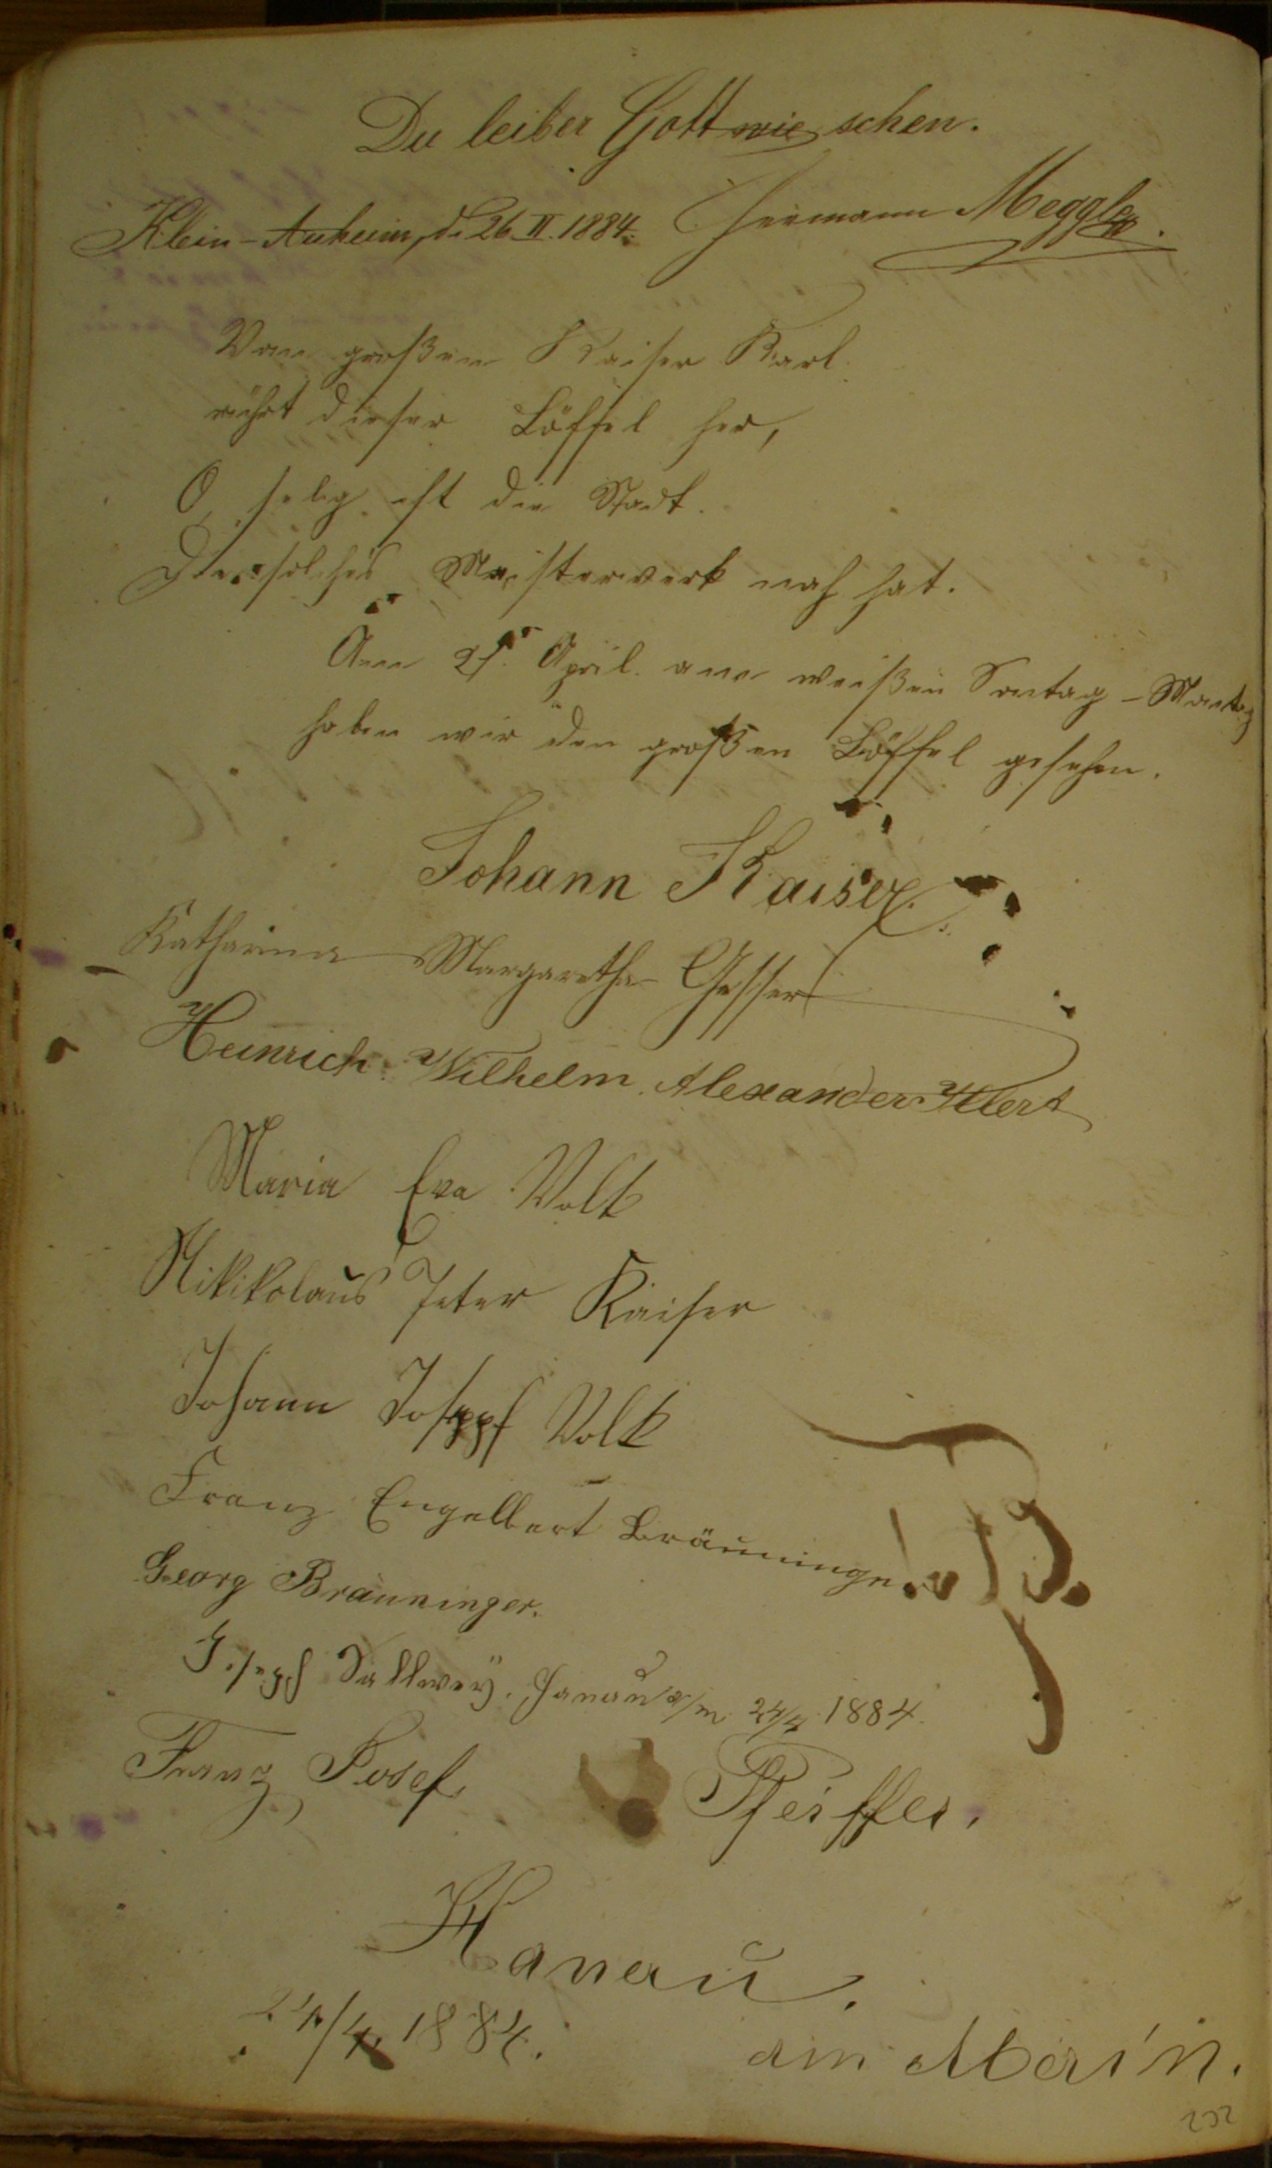 Du leiber Gott wie schen.
Klein-Auheim, d. 26. II. 1884. Hermann Meggle.
Vom großen Kaiser Karl.
rührt dieser Löffel her,
O, selig ist die Stadt.
Die solches Meisterwerk nah hat.
Am 21. April. am weißen Sontag - Montag
haben wir den großen Löffel gesehen.
Johann Kaiser.
Katharina Margaretha Gesser
Heinrich Wilhelm Alexander
Maria Eva Volk
Nikikolaus Peter Kaiser
Johann Joseppf Volk
Franz Engelbert Bräuninger
Georg Bräuninger.
Joseph Sallwey. Hanau a/m 24/4 1884.
Franz Josef Pfeiffer.
Hanau.
24/4. 1884.
am Main.
202